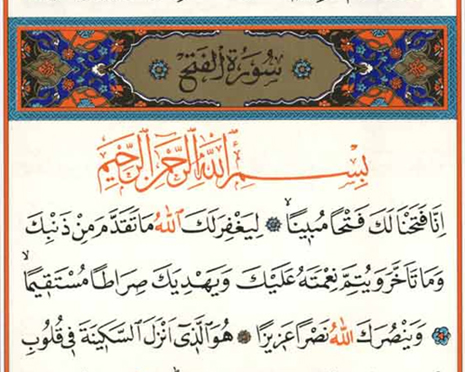 سُورَةُ الفَتْحِ
بِسْمِ اللّٰهِ الرَّحْمٰنِ الرَّحٖيمِ
اِنَّا فَتَحْنَا لَكَ فَتْحًا مُبٖينًاۙ لِيَغْفِرَ لَكَ اللّٰهُ مَا تَقَدَّمَ مِنْ ذَنْبِكَ
وَمَا تَاَخَّرَ وَيُتِمَّ نِعْمَتَهُ عَلَيْكَ وَيَهْدِيَكَ صِرَاطًا مُسْتَقٖيمًاۙ
وَيَنْصُرَكَ اللّٰهُ نَصْرًا عَزٖيزًا هُوَ الَّذٖٓى اَنْزَلَ السَّكٖينَةَ فٖى قُلُوبِ